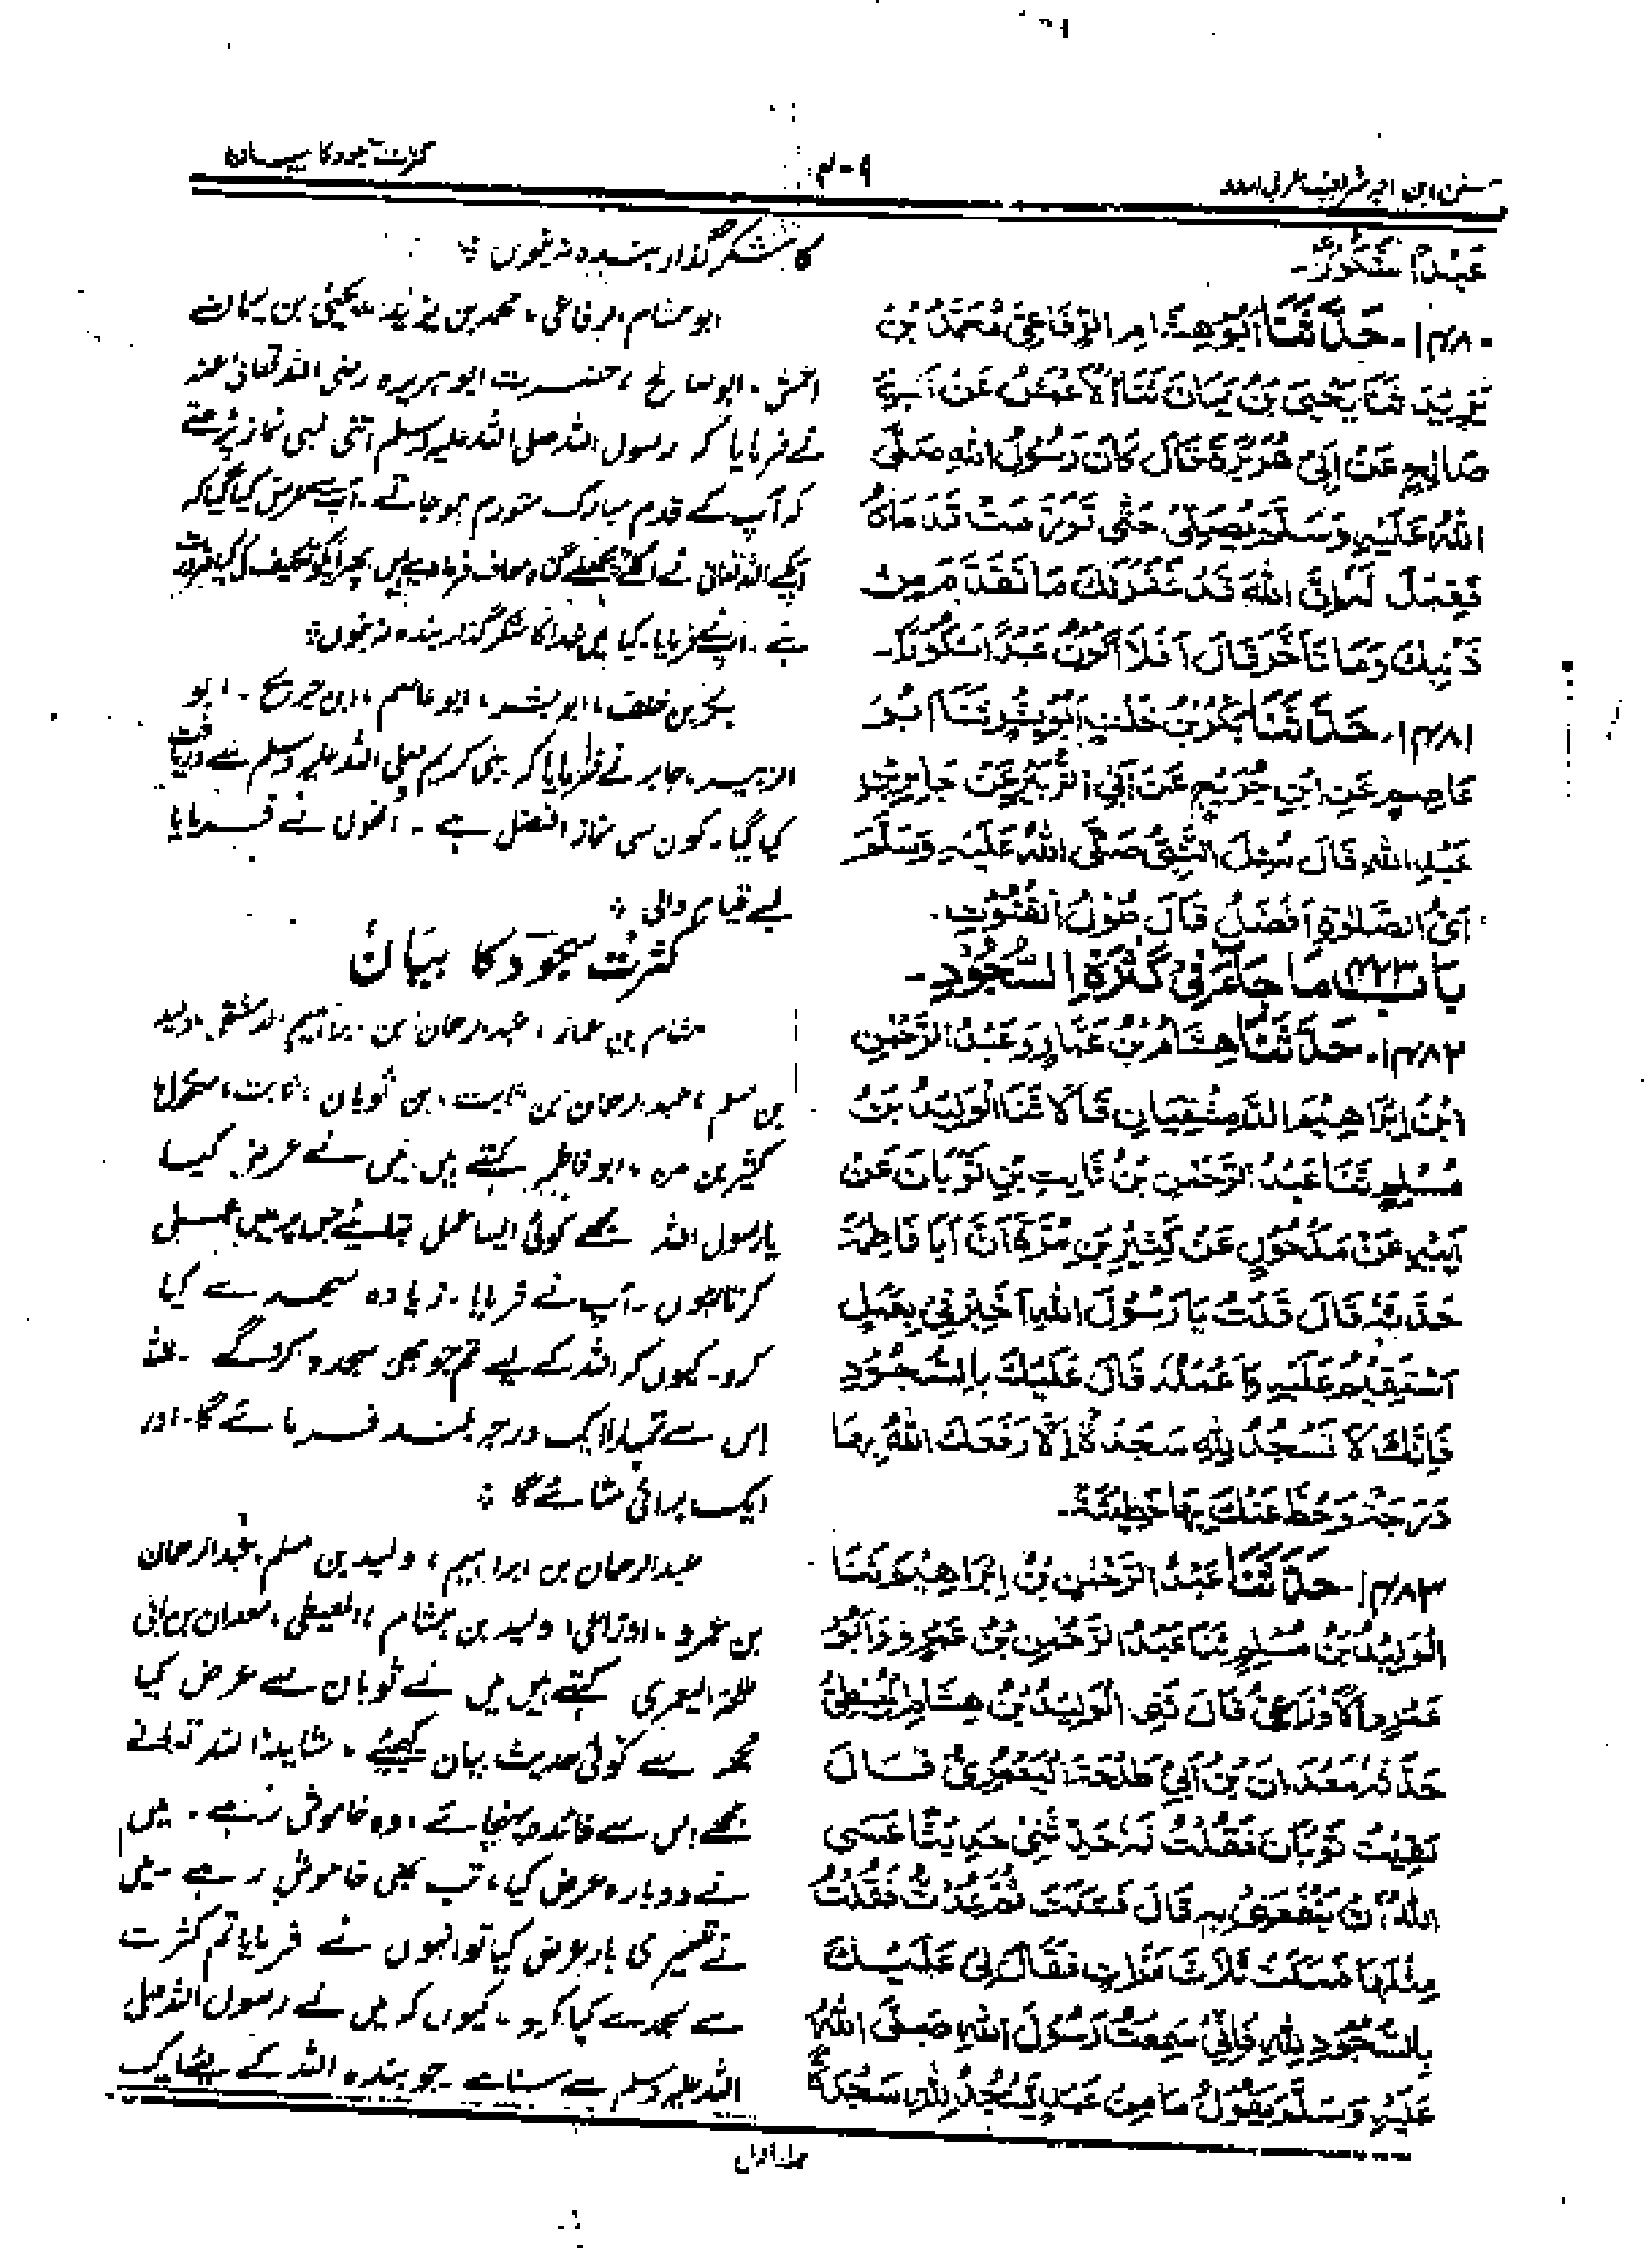 سنن ابن ماجہ شریف عربی اردو
۴۰۹
کثرت سجود کا بیان
عَبْدًا شَكُوْرًا۔
۱۴۸۰۔ حَدَّثَنَا اَبُوْ هِشَامِ الرِّفَاعِیُّ مُحَمَّدُ بْنُ
یَزِیْدَ ثَنَا یَحْیَی بْنُ یَمَانٍ ثَنَا الْاَعْمَشُ عَنْ اَبِیْ
صَالِحٍ عَنْ اَبِیْ هُرَیْرَةَ قَالَ كَانَ رَسُوْلُ اللهِ صَلَّی
اللهُ عَلَیْهِ وَسَلَّمَ یُصَلِّیْ حَتّٰی تَوَرَّمَتْ قَدَمَاهُ
فَقِیْلَ لَهٗ اِنَّ اللهَ قَدْ غَفَرَ لَكَ مَا تَقَدَّمَ مِنْ
ذَنْبِكَ وَمَا تَاَخَّرَ قَالَ اَفَلَا اَكُوْنُ عَبْدًا شَكُوْرًا۔
۱۴۸۱۔ حَدَّثَنَا بَكْرُ بْنُ خَلَفٍ اَبُوْ بِشْرٍ ثَنَا اَبُوْ
عَاصِمٍ عَنِ ابْنِ جُرَیْجٍ عَنْ اَبِی الزُّبَیْرِ عَنْ جَابِرِ بْنِ
عَبْدِ اللهِ قَالَ سُئِلَ النَّبِیُّ صَلَّی اللهُ عَلَیْهِ وَسَلَّمَ
اَیُّ الصَّلٰوةِ اَفْضَلُ قَالَ طُوْلُ الْقُنُوْتِ۔
بَاب ۴۲۳ مَا جَاءَ فِیْ كَثْرَةِ السُّجُوْدِ۔
۱۴۸۲۔ حَدَّثَنَا هِشَامُ بْنُ عَمَّارٍ وَعَبْدُ الرَّحْمٰنِ
ابْنُ اِبْرَاهِیْمَ الدِّمَشْقِیَّانِ قَالَا ثَنَا الْوَلِیْدُ بْنُ
مُسْلِمٍ ثَنَا عَبْدُ الرَّحْمٰنِ بْنُ ثَابِتِ بْنِ ثَوْبَانَ عَنْ
اَبِیْهِ عَنْ مَكْحُوْلٍ عَنْ كَثِیْرِ بْنِ مُرَّةَ اَنَّ اَبَا فَاطِمَةَ
حَدَّثَهٗ قَالَ قُلْتُ یَا رَسُوْلَ اللهِ اَخْبِرْنِیْ بِعَمَلٍ
اَسْتَقِیْمُ عَلَیْهِ وَاَعْمَلُهٗ قَالَ عَلَیْكَ بِالسُّجُوْدِ
فَاِنَّكَ لَا تَسْجُدُ لِلّٰهِ سَجْدَةً اِلَّا رَفَعَكَ اللهُ بِهَا
دَرَجَةً وَحَطَّ عَنْكَ بِهَا خَطِیْئَةً۔
۱۴۸۳۔ حَدَّثَنَا عَبْدُ الرَّحْمٰنِ بْنُ اِبْرَاهِیْمَ ثَنَا
الْوَلِیْدُ بْنُ مُسْلِمٍ ثَنَا عَبْدُ الرَّحْمٰنِ بْنُ عَمْرٍو وَاَبُوْ
عَمْرٍو الْاَوْزَاعِیُّ قَالَ ثَنِی الْوَلِیْدُ بْنُ هِشَامٍ الْمُعَیْطِیُّ
حَدَّثَهٗ مَعْدَانُ بْنُ اَبِیْ طَلْحَةَ الْیَعْمُرِیُّ قَالَ
لَقِیْتُ ثَوْبَانَ فَقُلْتُ لَهٗ حَدِّثْنِیْ حَدِیْثًا عَسَی
اللهُ اَنْ یَّنْفَعَنِیْ بِهٖ قَالَ فَسَكَتَ ثُمَّ عُدْتُ فَقُلْتُ
مِثْلَهَا فَسَكَتَ ثَلَاثَ مَرَّاتٍ فَقَالَ لِیْ عَلَیْكَ
بِالسُّجُوْدِ لِلّٰهِ فَاِنِّیْ سَمِعْتُ رَسُوْلَ اللهِ صَلَّی اللهُ
عَلَیْهِ وَسَلَّمَ یَقُوْلُ مَا مِنْ عَبْدٍ یَّسْجُدُ لِلّٰهِ سَجْدَةً
کا شکر گذار بندہ نہ بنوں ؛
ابو ہشام الرفاعی، محمد بن یزید، یحیٰی بن یمان نے
اعمش، ابو صالح، حضرت ابو ہریرہ رضی اللہ تعالیٰ عنہ
نے فرمایا کہ رسول اللہ صلی اللہ علیہ وسلم اتنی لمبی نماز پڑھتے
کہ آپ کے قدم مبارک متورم ہو جاتے۔ آپ سے عرض کیا گیا کہ
آپکے اللہ تعالیٰ نے اگلے پچھلے گناہ معاف فرما دیے ہیں پھر آپکو تکلیف کی کیا ضرورت
ہے۔ آپ نے فرمایا۔ کیا میں خدا کا شکر گذار بندہ نہ بنوں ؛
بکر بن خلف، ابو بشر، ابو عاصم، ابن جریج۔ ابو
الزبیر، جابر نے فرمایا کہ نبی کریم صلی اللہ علیہ وسلم سے دریافت
کیا گیا۔ کون سی نماز افضل ہے۔ اُنھوں نے فرمایا
لمبے قیام والی ؛
کثرت سجود کا بیان
ہشام بن عمار، عبدالرحمان بن ابراہیم الدمشقی، ولید
بن مسلم، عبدالرحمان بن ثابت، ابن ثوبان، ثابت، مکحول
کثیر بن مرہ، ابو فاطمہ کہتے ہیں میں نے عرض کیا
یا رسول اللہ مجھے کوئی ایسا عمل بتلائیے جس پر میں عمل
کرتا ہوں۔ آپ نے فرمایا۔ زیادہ سجدے کیا
کرو۔ کیوں کہ اللہ کے لیے تم جو بھی سجدہ کروگے۔ اللہ
اس سے تمہارا ایک درجہ بلند فرمائے گا۔ اور
ایک برائی مٹائے گا ؛
عبدالرحمان بن ابراہیم، ولید بن مسلم، عبدالرحمان
بن عمرو، اوزاعی، ولید بن ہشام، المعیطی، معدان بن ابی
طلحۃ الیعمری کہتے ہیں میں نے ثوبان سے عرض کیا
مجھ سے کوئی حدیث بیان کیجئیے۔ شاید اللہ تعالے
مجھے اس سے فائدہ پہنچائے، وہ خاموش رہے۔ میں
نے دوبارہ عرض کیا، تب بھی خاموش رہے میں
نے تیسری بار عرض کیا تو انہوں نے فرمایا تم کثرت
سے سجدے کیا کرو۔ کیوں کہ میں نے رسول اللہ صلی
اللہ علیہ وسلم سے سنا ہے۔ جو بندہ اللہ کے لیے ایک
جلد اول